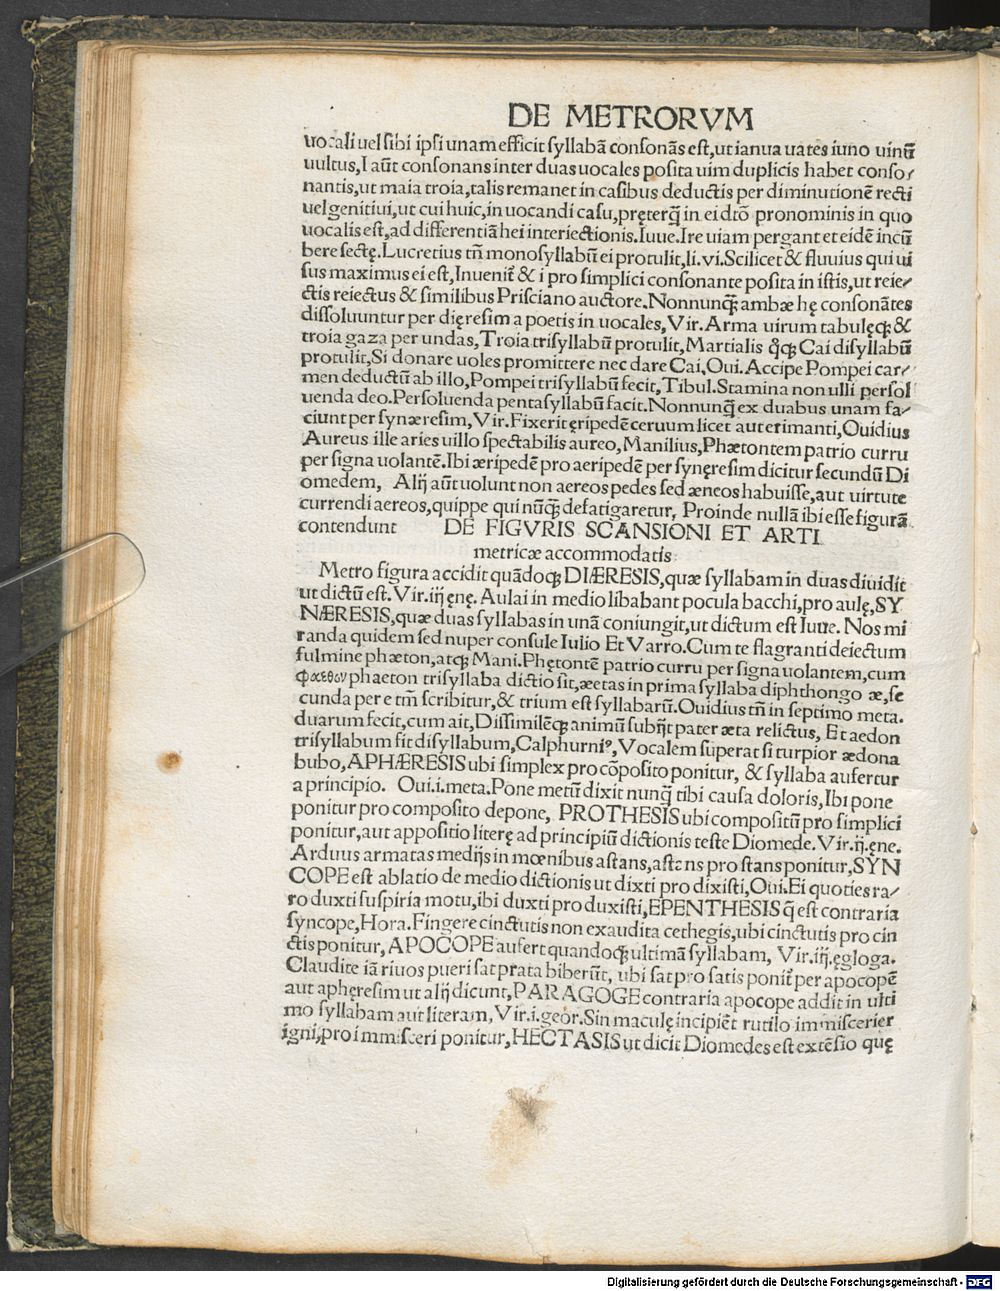 DE METRORVM
uocali uel sibi ipsi unam efficit syllabā consonās est, ut ianua uates iuno uinū
uultus, I aūt consonans inter duas uocales posita uim duplicis habet conso/
nantis, ut maia troia, talis remanet in casibus deductis per diminutionē recti
uel genitiui, ut cui huic, in uocandi casu, pręterq̄ in ei dtō pronominis in quo
uocalis est, ad differentiā hei interiectionis. Iuue. Ire uiam pergant et eidē incū
bere sectę. Lucretius tñ monosyllabū ei protulit, li. vi. Scilicet & fluuius qui ui
sus maximus ei est, Inuenit̄ & i pro simplici consonante posita in istis, ut reie/
ctis reiectus & similibus Prisciano auctore. Nonnunq̄ ambæ hę consonātes
dissoluuntur per dięresim a poetis in uocales, Vir. Arma uirum tabulęq; &
troia gaza per undas, Troia trisyllabū protulit, Martialis q̊q; Cai disyllabū
protulit, Si donare uoles promittere nec dare Cai, Oui. Accipe Pompei car/
men deductū ab illo, Pompei trisyllabū fecit, Tibul. Stamina non ulli persol
uenda deo. Persoluenda pentasyllabū facit. Nonnunq̄ ex duabus unam fa/
ciunt per synæresim, Vir. Fixerit ęripedē ceruum licet aut erimanti, Ouidius
Aureus ille aries uillo spectabilis aureo, Manilius, Phætontem patrio curru
per signa uolantē. Ibi æripedē pro aeripedē per synęresim dicitur secundū Di
omedem, Alij aūt uolunt non aereos pedes sed æneos habuisse, aut uirtute
currendi aereos, quippe qui nūq; defatigaretur, Proinde nullā ibi esse figurā
contendunt DE FIGVRIS SCANSIONI ET ARTI
metricæ accommodatis:
Metro figura accidit quādoq; DIÆRESIS, quæ syllabam in duas diuidit
ut dictū est. Vir. iij ęnę. Aulai in medio libabant pocula bacchi, pro aulę, SY
NÆRESIS, quæ duas syllabas in unā coniungit, ut dictum est Iuue. Nos mi
randa quidem sed nuper consule Iulio Et Varro. Cum te flagranti deiectum
fulmine phæton, atq; Mani. Phętontē patrio curru per signa uolantem, cum
φαεθον phaeton trisyllaba dictio sit, æetas in prima syllaba diphthongo æ, se
cunda per e tm̄ scribitur, & trium est syllabarū. Ouidius tñ in septimo meta.
duarum fecit, cum ait, Dissimilēq; animū subijt pater æta relictus, Et aedon
trisyllabum fit disyllabum, Calphurni⁹, Vocalem superat si turpior ædona
bubo, APHÆRESIS ubi simplex pro cōposito ponitur, & syllaba aufertur
a principio. Oui. i. meta. Pone metū dixit nunq̄ tibi causa doloris, Ibi pone
ponitur pro composito depone, PROTHESIS ubi compositū pro simplici
ponitur, aut appositio literę ad principiū dictionis teste Diomede. Vir. ij. ęne.
Arduus armatas medijs in mœnibus astans, astans pro stans ponitur, SYN
COPE est ablatio de medio dictionis ut dixti pro dixisti, Oui. Ei quoties ra/
ro duxti suspiria motu, ibi duxti pro duxisti, EPENTHESIS q̄ est contraria
syncope, Hora. Fingere cinctutis non exaudita cethegis, ubi cinctutis pro cin
ctis ponitur, APOCOPE aufert quandoq; ultimā syllabam, Vir. iij. ęgloga.
Claudite iā riuos pueri sat prata biberūt, ubi sat pro satis ponit̄ per apocopē
aut aphęresim ut alij dicunt, PARAGOGE contraria apocope addit in ulti
mo syllabam aut literam, Vir. i. geor. Sin maculę incipiēt rutilo immiscerier
igni, pro immisceri ponitur, HECTASIS ut dicit Diomedes est extēsio quę
Digitalisierung gefördert durch die Deutsche Forschungsgemeinschaft - DFG